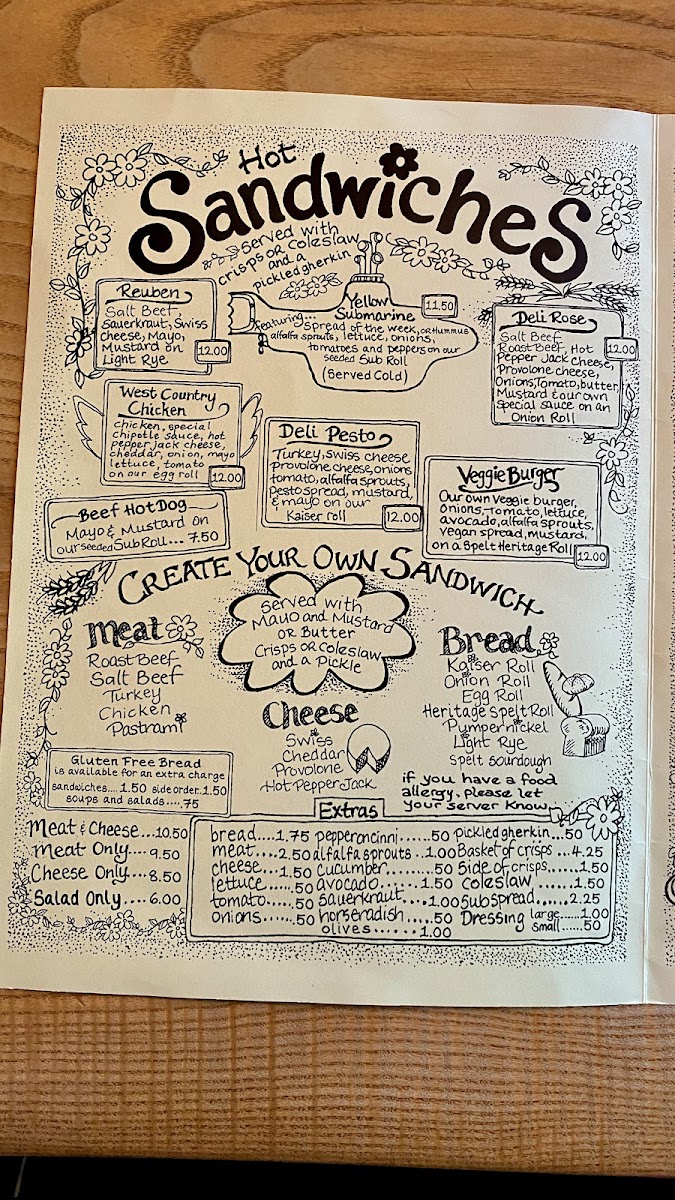 Hot
Sandwiches
Served with
crisps OR coleslaw
and a
pickled gherkin
Reuben
Salt Beef,
Sauerkraut, Swiss
cheese, Mayo,
Mustard on
Light Rye
12.00
Yellow
Submarine
11.50
Featuring...
Spread of the week, OR Hummus
alfalfa sprouts, lettuce, onions,
tomatoes and peppers on our
seeded Sub Roll
(Served Cold)
Deli Rose
Salt Beef
Roast Beef, Hot
Pepper Jack cheese,
Provolone cheese,
Onions, Tomato, butter,
Mustard & our own
Special sauce on an
Onion Roll
12.00
West Country
Chicken
chicken, special
chipotle sauce, hot
pepper jack cheese,
cheddar, onion, mayo
lettuce, tomato
on our egg roll
12.00
Deli Pesto
Turkey, swiss cheese
provolone cheese, onions
tomato, alfalfa sprouts,
pesto spread, mustard,
& mayo on our
Kaiser roll
12.00
Veggie Burger
Our own veggie burger,
onions, tomato, lettuce,
avocado, alfalfa sprouts,
vegan spread, mustard,
on a Spelt Heritage Roll
12.00
Beef Hot Dog
Mayo & Mustard on
our seeded Sub Roll... 7.50
CREATE YOUR OWN SANDWICH
Served with
Mayo and Mustard
OR Butter
Crisps OR Coleslaw
and a Pickle
Meat
Roast Beef
Salt Beef
Turkey
Chicken
Pastrami
Cheese
Swiss
Cheddar
Provolone
Hot Pepper Jack
Bread
Kaiser Roll
Onion Roll
Egg Roll
Heritage Spelt Roll
Pumpernickel
Light Rye
spelt sourdough
Gluten Free Bread
is available for an extra charge
sandwiches.... 1.50 side order. 1.50
soups and salads..... .75
if you have a food
allergy, please let
your server know.
Meat & Cheese... 10.50
Meat Only.... 9.50
Cheese Only... 8.50
Salad Only.... 6.00
Extras
bread.... 1.75 pepperoncinni...... .50 pickled gherkin... .50
meat.... 2.50 alfalfa sprouts .. 1.00 Basket of crisps ... 4.25
cheese... 1.50 cucumber......... .50 Side of crisps...... 1.50
lettuce..... .50 avocado....... 1.50 coleslaw ........ 1.50
tomato..... .50 sauerkraut.... 1.00 sub spread...... 2.25
onions...... .50 horseradish ..... .50 Dressing large...... 1.00
small..... .50
olives...... 1.00